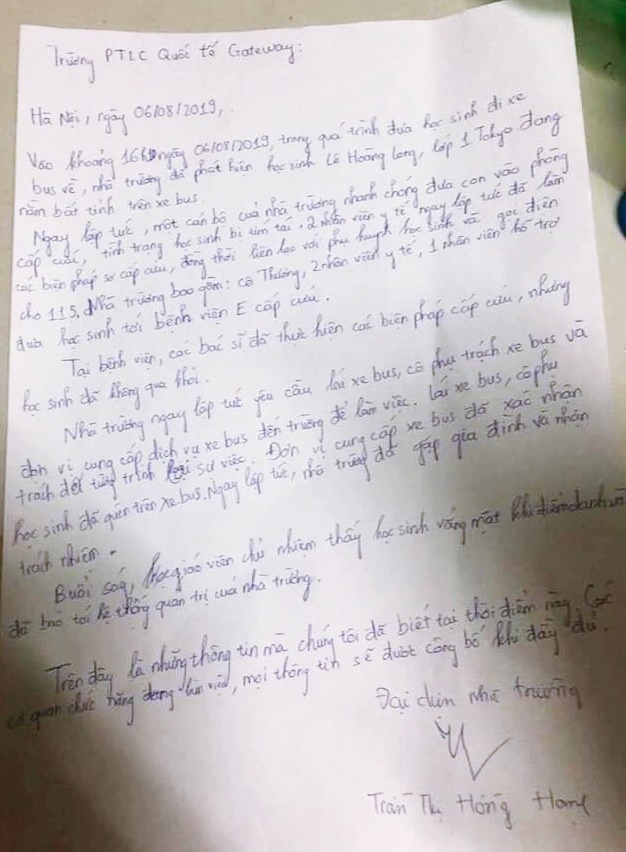 Trường PTLC Quốc tế Gateway:
Hà Nội, ngày 06/08/2019,.
Vào khoảng 16h ngày 06/08/2019, trong quá trình đưa học sinh đi xe
bus về, nhà trường đã phát hiện học sinh Lê Hoàng Long, lớp 1 Tokyo đang
nằm bất tỉnh trên xe bus.
Ngay lập tức, một cán bộ của nhà trường nhanh chóng đưa con vào phòng
cấp cứu, tình trạng học sinh bị tím tái, 2 nhân viên y tế ngay lập tức đã làm
các biện pháp sơ cấp cứu, đồng thời liên lạc với phụ huynh học sinh và gọi điện
cho 115. Nhà trường bao gồm: cô Thương, 2 nhân viên y tế, 1 nhân viên hỗ trợ
đưa học sinh tới bệnh viện E cấp cứu.
Tại bệnh viện, các bác sĩ đã thực hiện các biện pháp cấp cứu, nhưng
học sinh đã không qua khỏi.
Nhà trường ngay lập tức yêu cầu lái xe bus, cô phụ trách xe bus và
đơn vị cung cấp dịch vụ xe bus đến trường để làm việc. Lái xe bus, cô phụ
trách đã tường trình lại sự việc. Đơn vị cung cấp xe bus đã xác nhận
học sinh đã quên trên xe bus. Ngay lập tức, nhà trường đã gặp gia đình và nhận
trách nhiệm.
Buổi sáng, giáo viên chủ nhiệm thấy học sinh vắng mặt khi điểm danh và
đã báo tới hệ thống quản trị của nhà trường.
Trên đây là những thông tin mà chúng tôi đã biết tại thời điểm này. Các
cơ quan chức năng đang làm việc, mọi thông tin sẽ được công bố khi đầy đủ.
Đại diện nhà trường
Trần Thị Hồng Hạnh